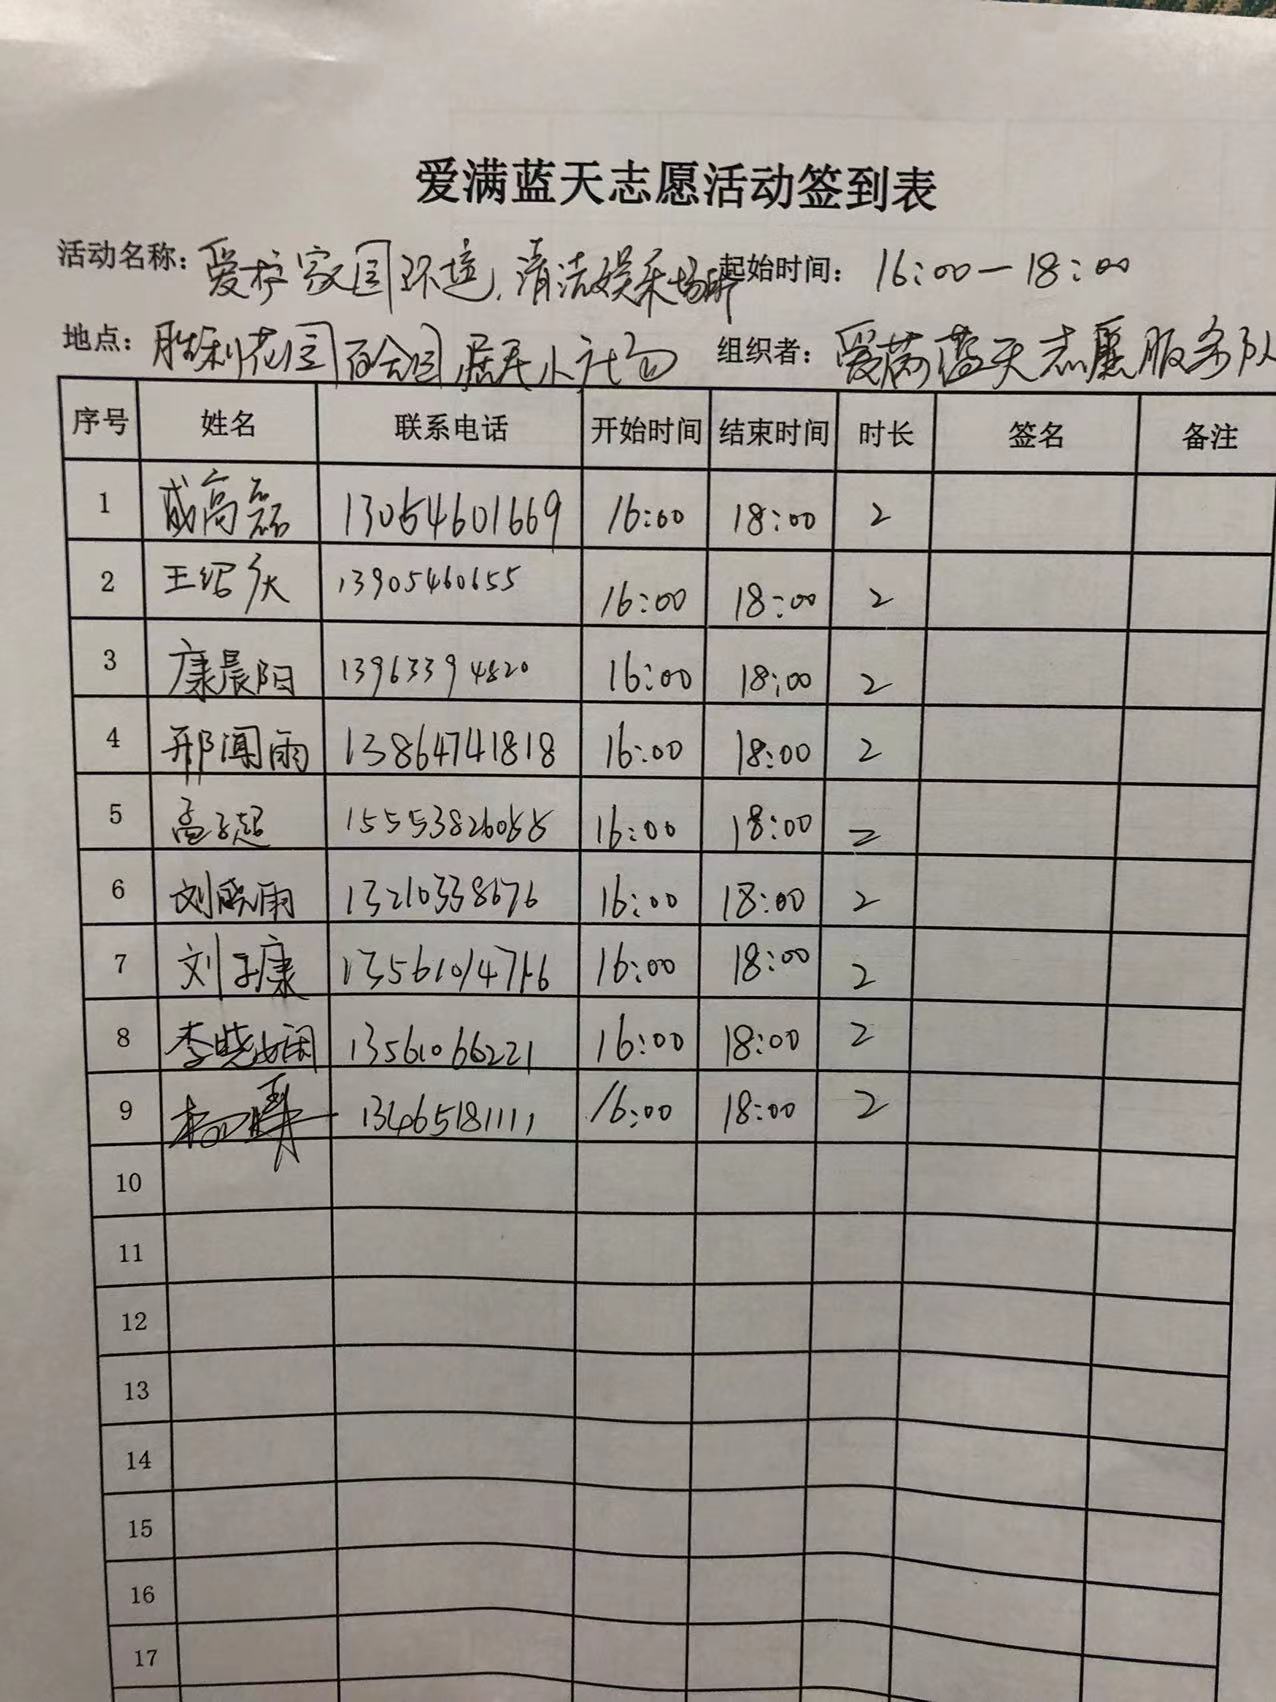 爱满蓝天志愿活动签到表
活动名称: 爱护家园环境,清洁娱乐场所 起始时间: 16:00—18:00
地点: 胜利花园百合园居民小广场 组织者: 爱满蓝天志愿服务队
序号 姓名 联系电话 开始时间 结束时间 时长 签名 备注
1 高磊 13054601669 16:00 18:00 2
2 王绍庆 13905460655 16:00 18:00 2
3 康晨阳 13963394820 16:00 18:00 2
4 邢闻雨 13864741818 16:00 18:00 2
5 孟子超 16:00 18:00 2
6 刘晓雨 13210338676 16:00 18:00 2
7 刘子康 16:00 18:00 2
8 李晓娴 13561066221 16:00 18:00 2
9 13465181111 16:00 18:00 2
10
11
12
13
14
15
16
17